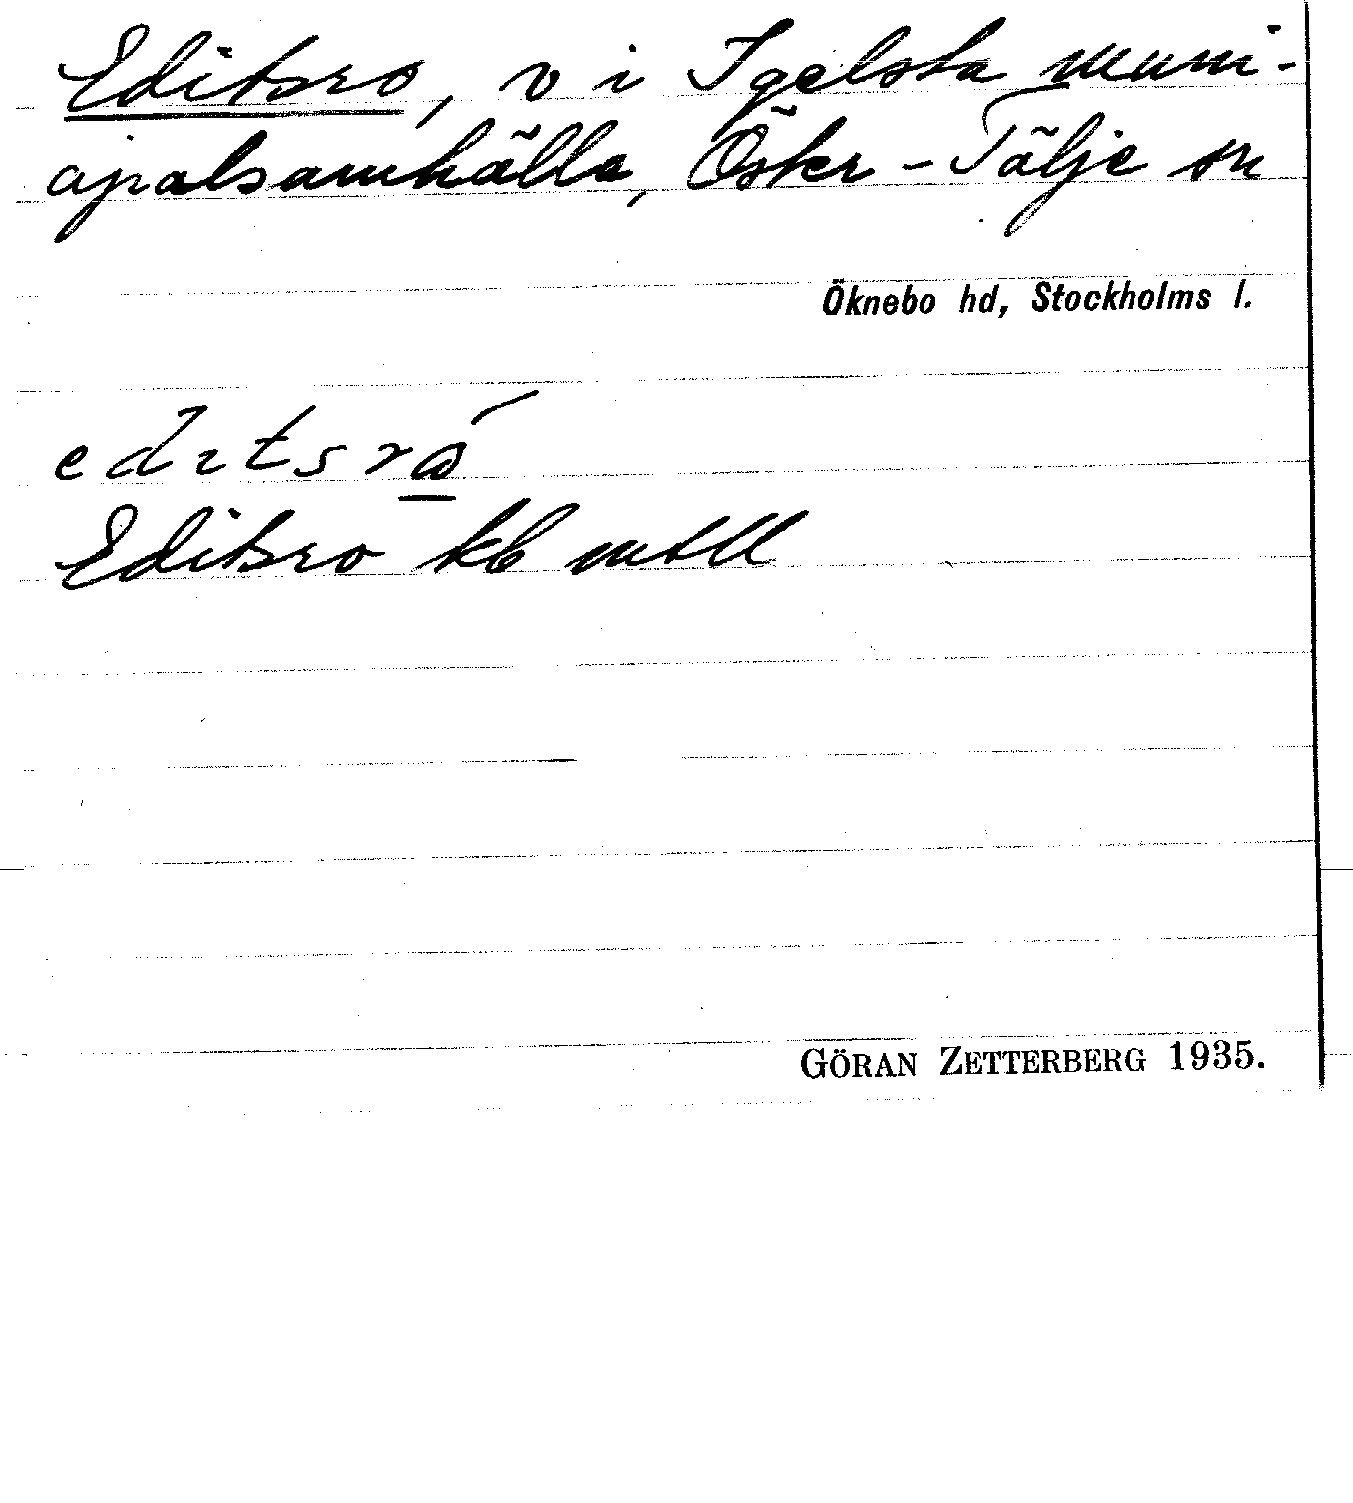 Editsro, v i Igelsta muni-
cipalsamhälle, Öster-Tälje sn
Öknebo hd, Stockholms l.
Editsro kb
GÖRAN ZETTERBERG 1935.